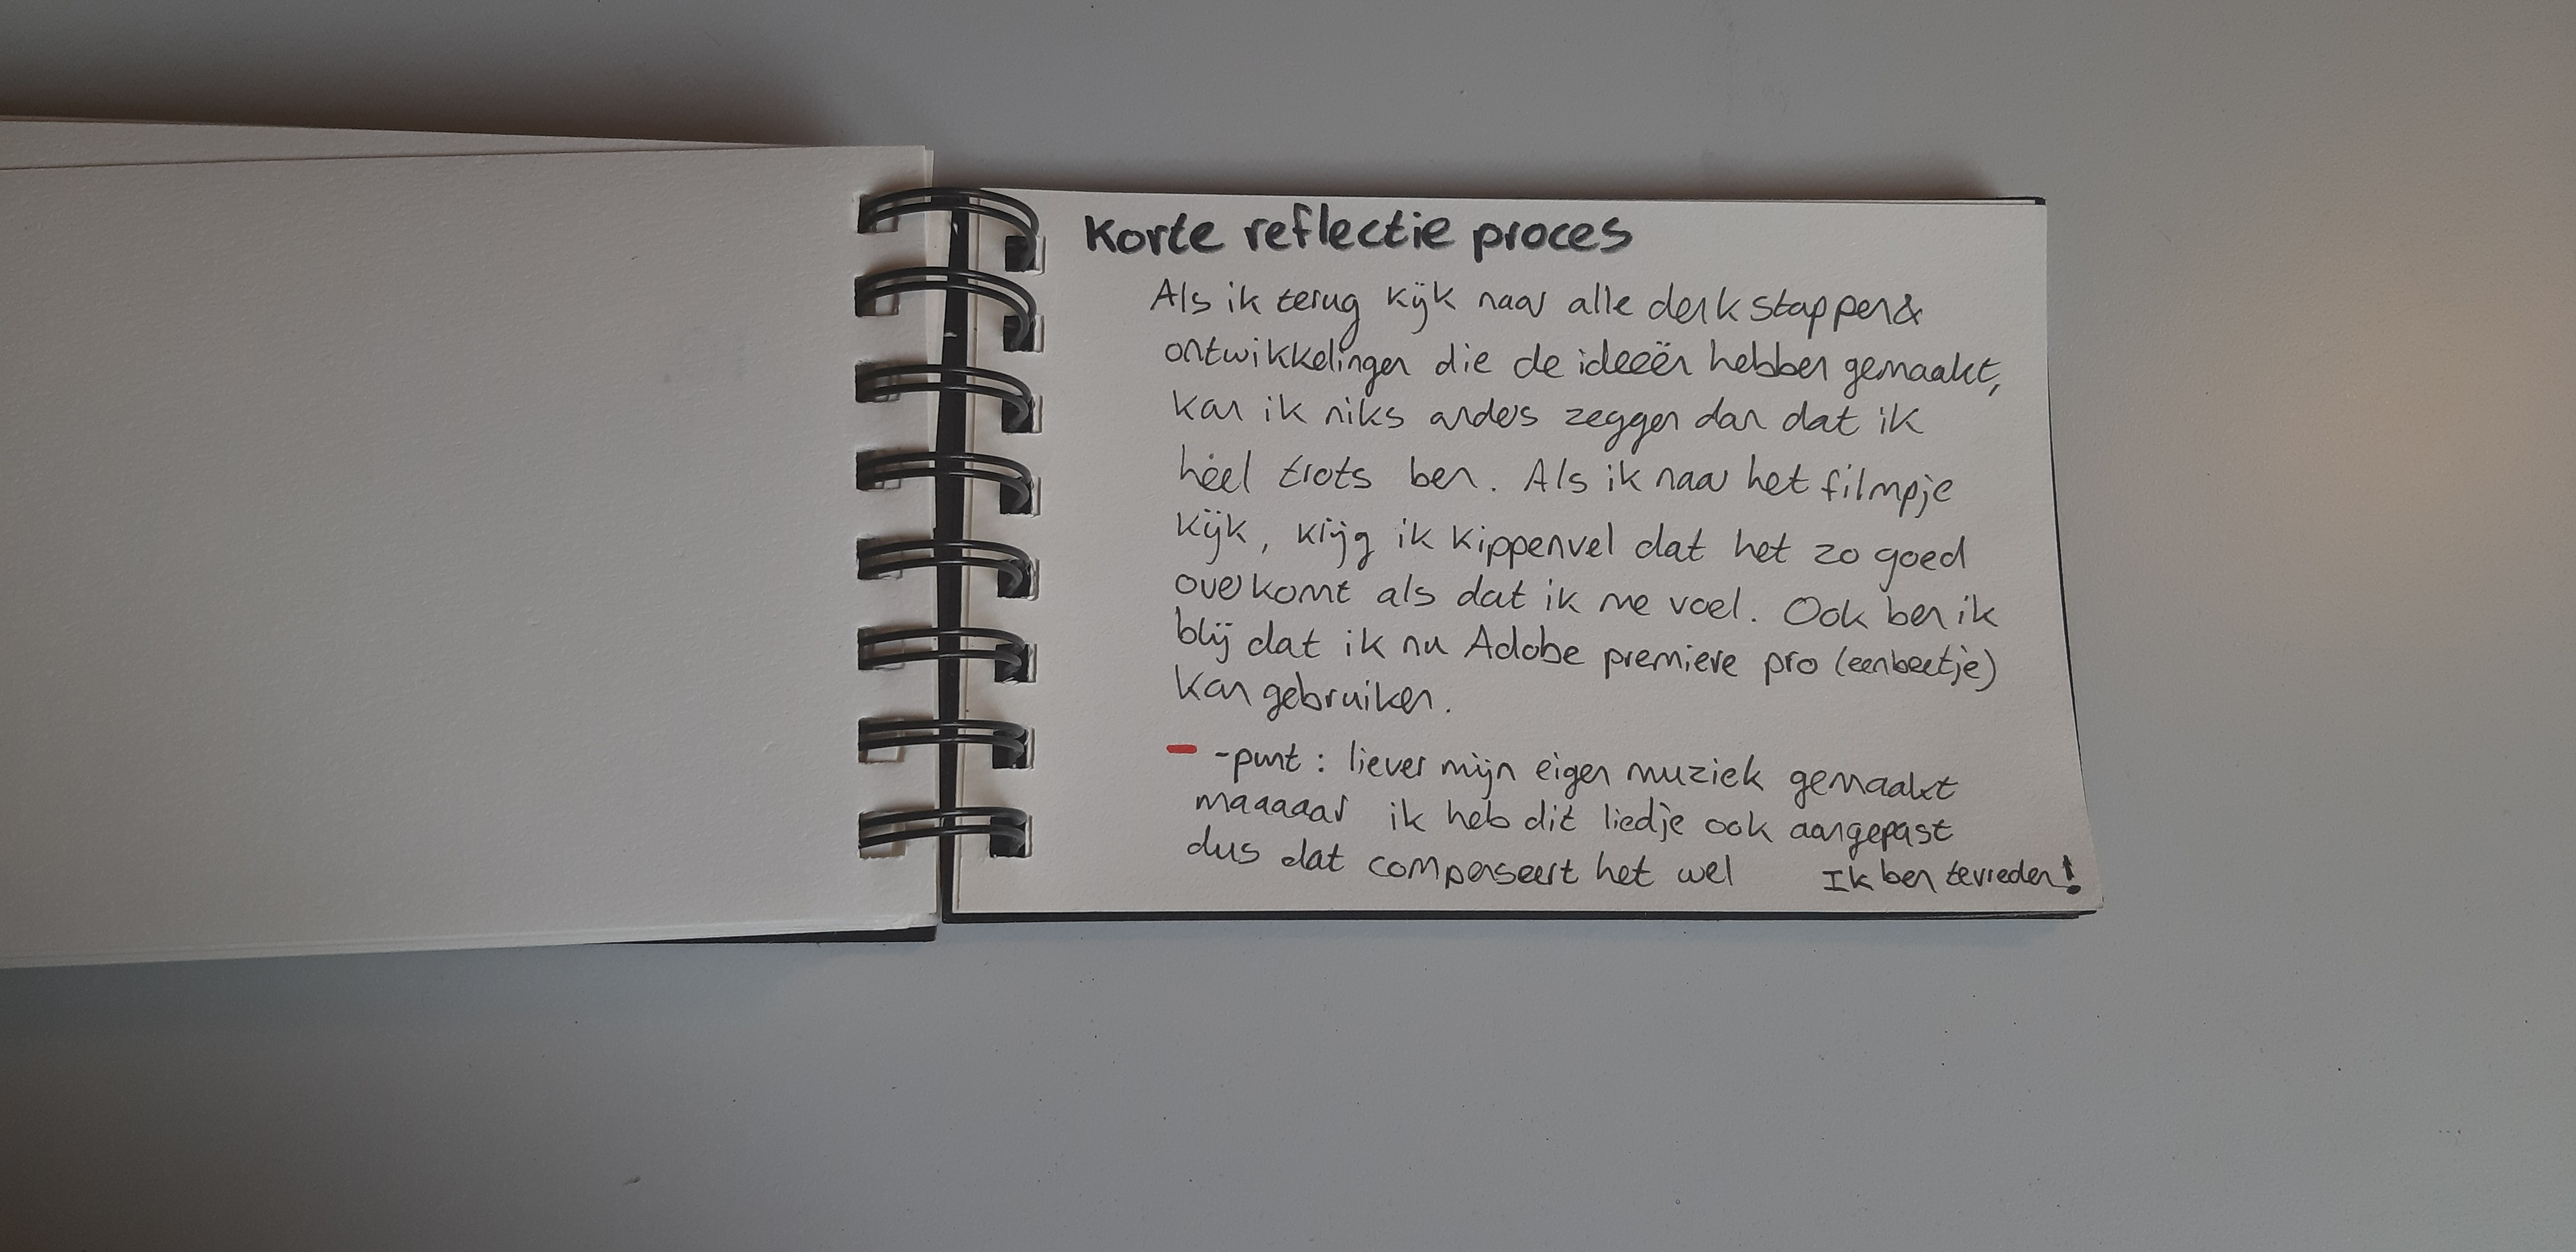 Korte reflectie proces
Als ik terug kijk naar alle denk stappen &
ontwikkelingen die de ideeën hebben gemaakt,
kan ik niks anders zeggen dan dat ik
héél trots ben. Als ik naar het filmpje
kijk, krijg ik kippenvel dat het zo goed
overkomt als dat ik me voel. Ook ben ik
blij dat ik nu Adobe premiere pro (eenbeetje)
kan gebruiken.
- -punt : liever mijn eigen muziek gemaakt
maaaaar ik heb dit liedje ook aangepast
dus dat compenseert het wel Ik ben tevreden!